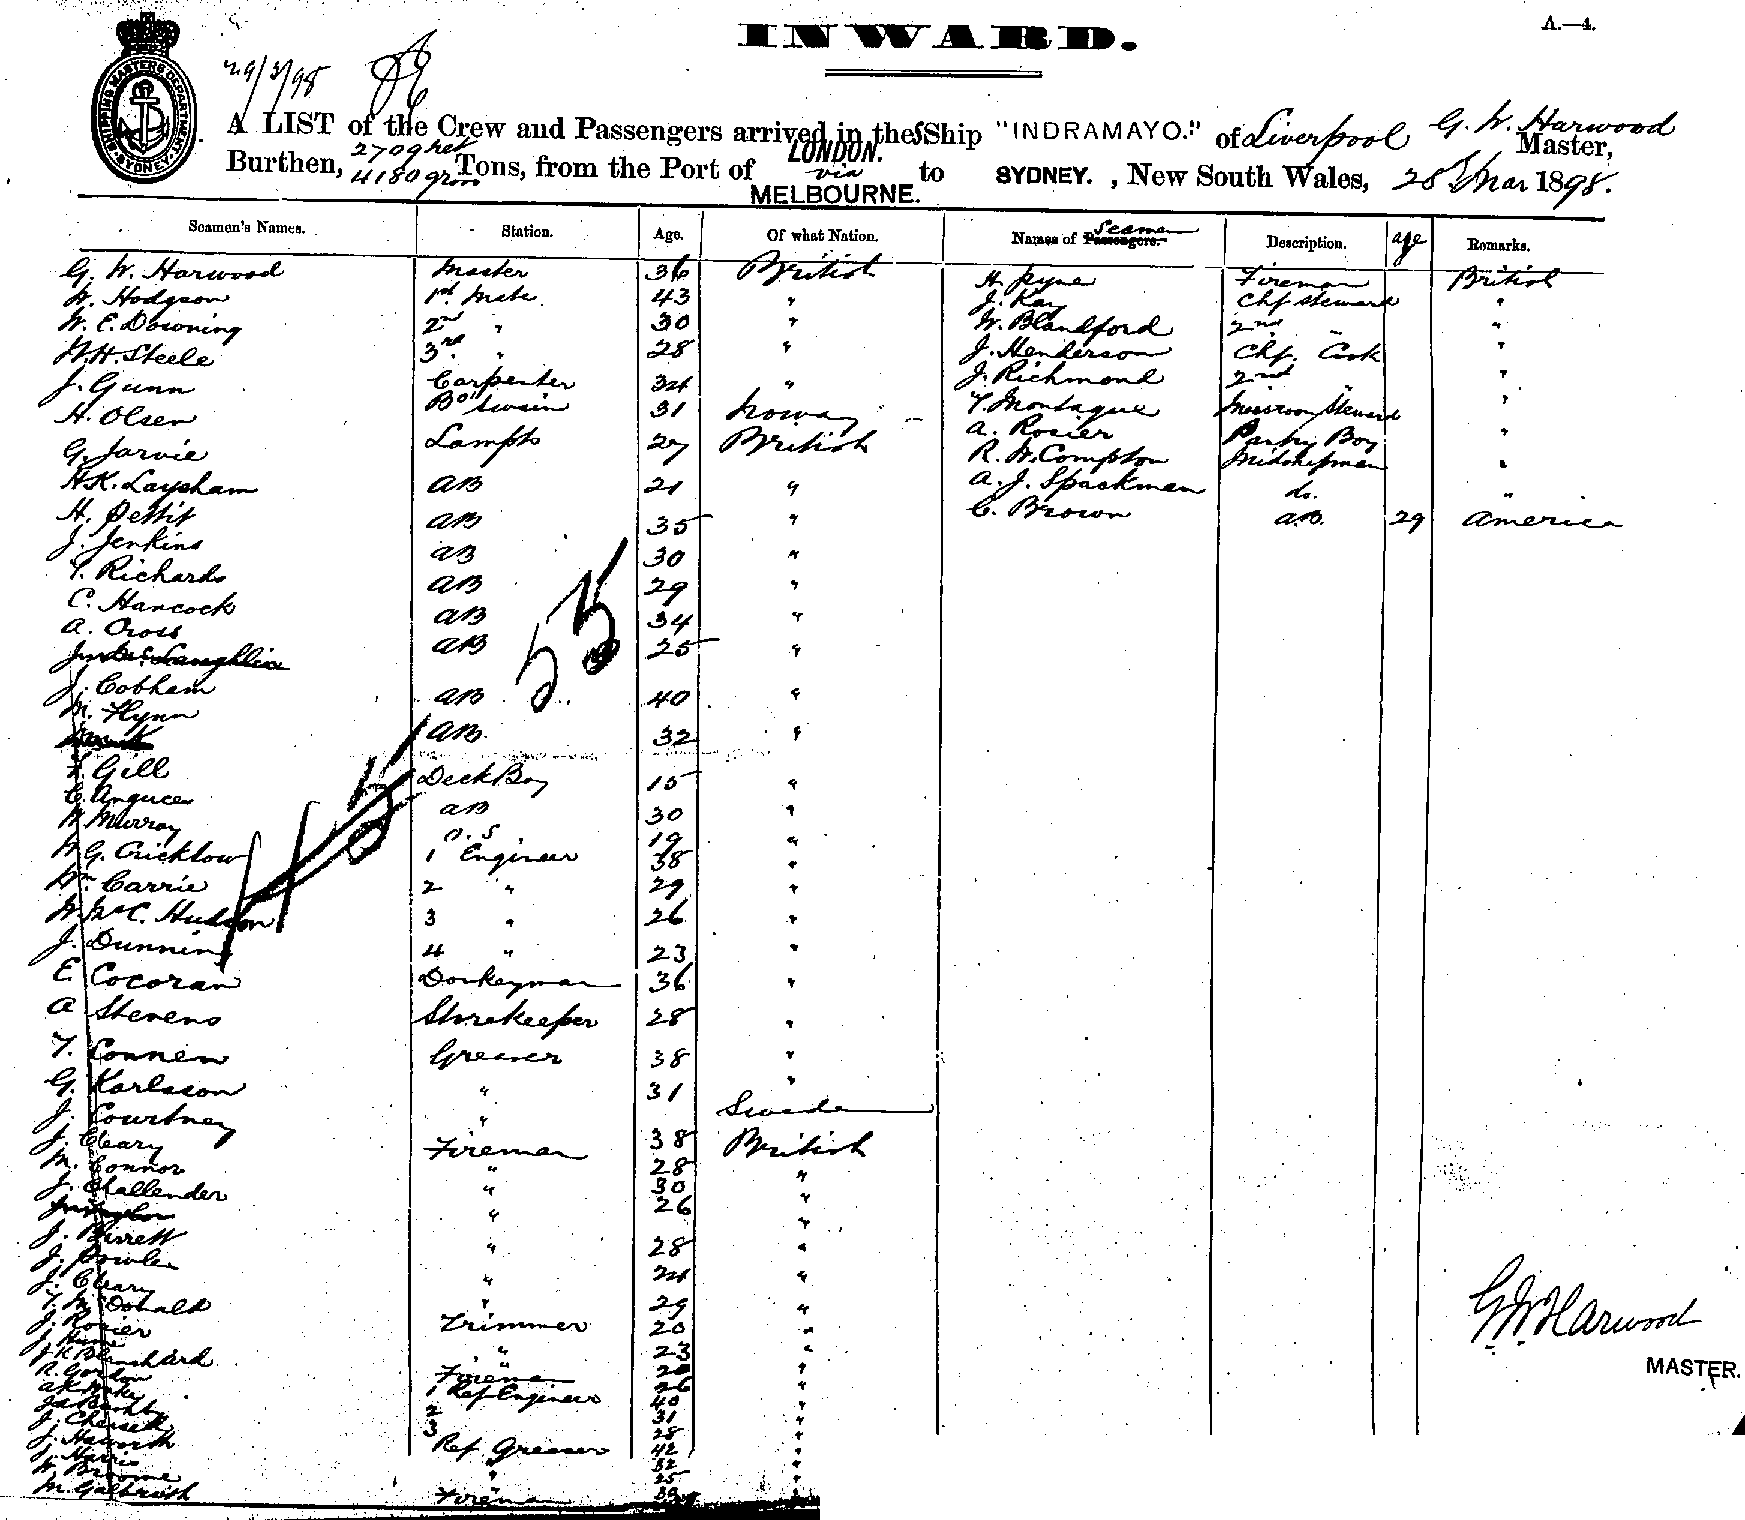 INWARD.
A.—4.
SHIPPING MASTERS DEPARTMENT SYDNEY
29/3/98
A LIST of the Crew and Passengers arrived in the SShip "INDRAMAYO." of Liverpool G. W. Harwood Master,
Burthen, 2709 net 4180 gross Tons, from the Port of LONDON. via MELBOURNE. to SYDNEY. , New South Wales, 28 Mar 1898.
Seamen's Names. Station. Age. Of what Nation. Names of Passengers. Seamen Description. age Remarks.
G. W. Harwood Master 36 British H. Pyne Fireman British
H. Hodgson 1st Mate 43 " J. Kay Chf Steward "
W. E. Downing 2nd " 30 " W. Blandford 2nd " "
W. H. Steele 3rd " 28 " J. Henderson Chf. Cook "
J. Gunn Carpenter 34 " J. Richmond 2nd " "
H. Olsen Bo'swain 31 Norway T. Montague Messroom Steward "
G. Jarvie Lamps 27 British A. Rosier Pantry Boy "
H. K. Laysham AB 21 " R. W. Compton Midshipman "
H. Pettit AB 35 " A. J. Spackman do. "
J. Jenkins AB 30 " C. Brown A.B. 29 America
T. Richards AB 29 "
C. Hancock AB 34 "
A. Cross AB 25 "
McLaughlin
J. Cobham AB 40 "
M. Flynn AB 32 "
F. Gill Deck Boy 15 "
C. AB 30 "
W. Murray O.S 19 "
W. G. Cricklow 1 Engineer 38 "
Wm. Carrie 2 " 29 "
W. McC. Hudson 3 " 26 "
J. Dunning 4 " 23 "
E. Cocoran Donkeyman 36 "
A Stevens Storekeeper 28 "
T. Connew Greaser 38 "
G. Karlsson " 31 Sweden
J. Courtney " 38 British
J. Cleary Fireman 28 "
M. Connor " 30 "
J. Challender " 26 "
J. Barrett " 28 "
J. " 24 "
J. Cleary " 29 "
T. McDonald Trimmer 20 "
J. Rosier " 23 "
J.
Blanchard Fireman 26 "
R. Gordon 1 Ref Engineer 40 "
2 31 "
3 28 "
J. Ref Greaser 42 "
J. Haworth " 32 "
J. Harris " 25 "
W. Broome
M. Galbraith Fireman "
55
G. W. Harwood
MASTER.